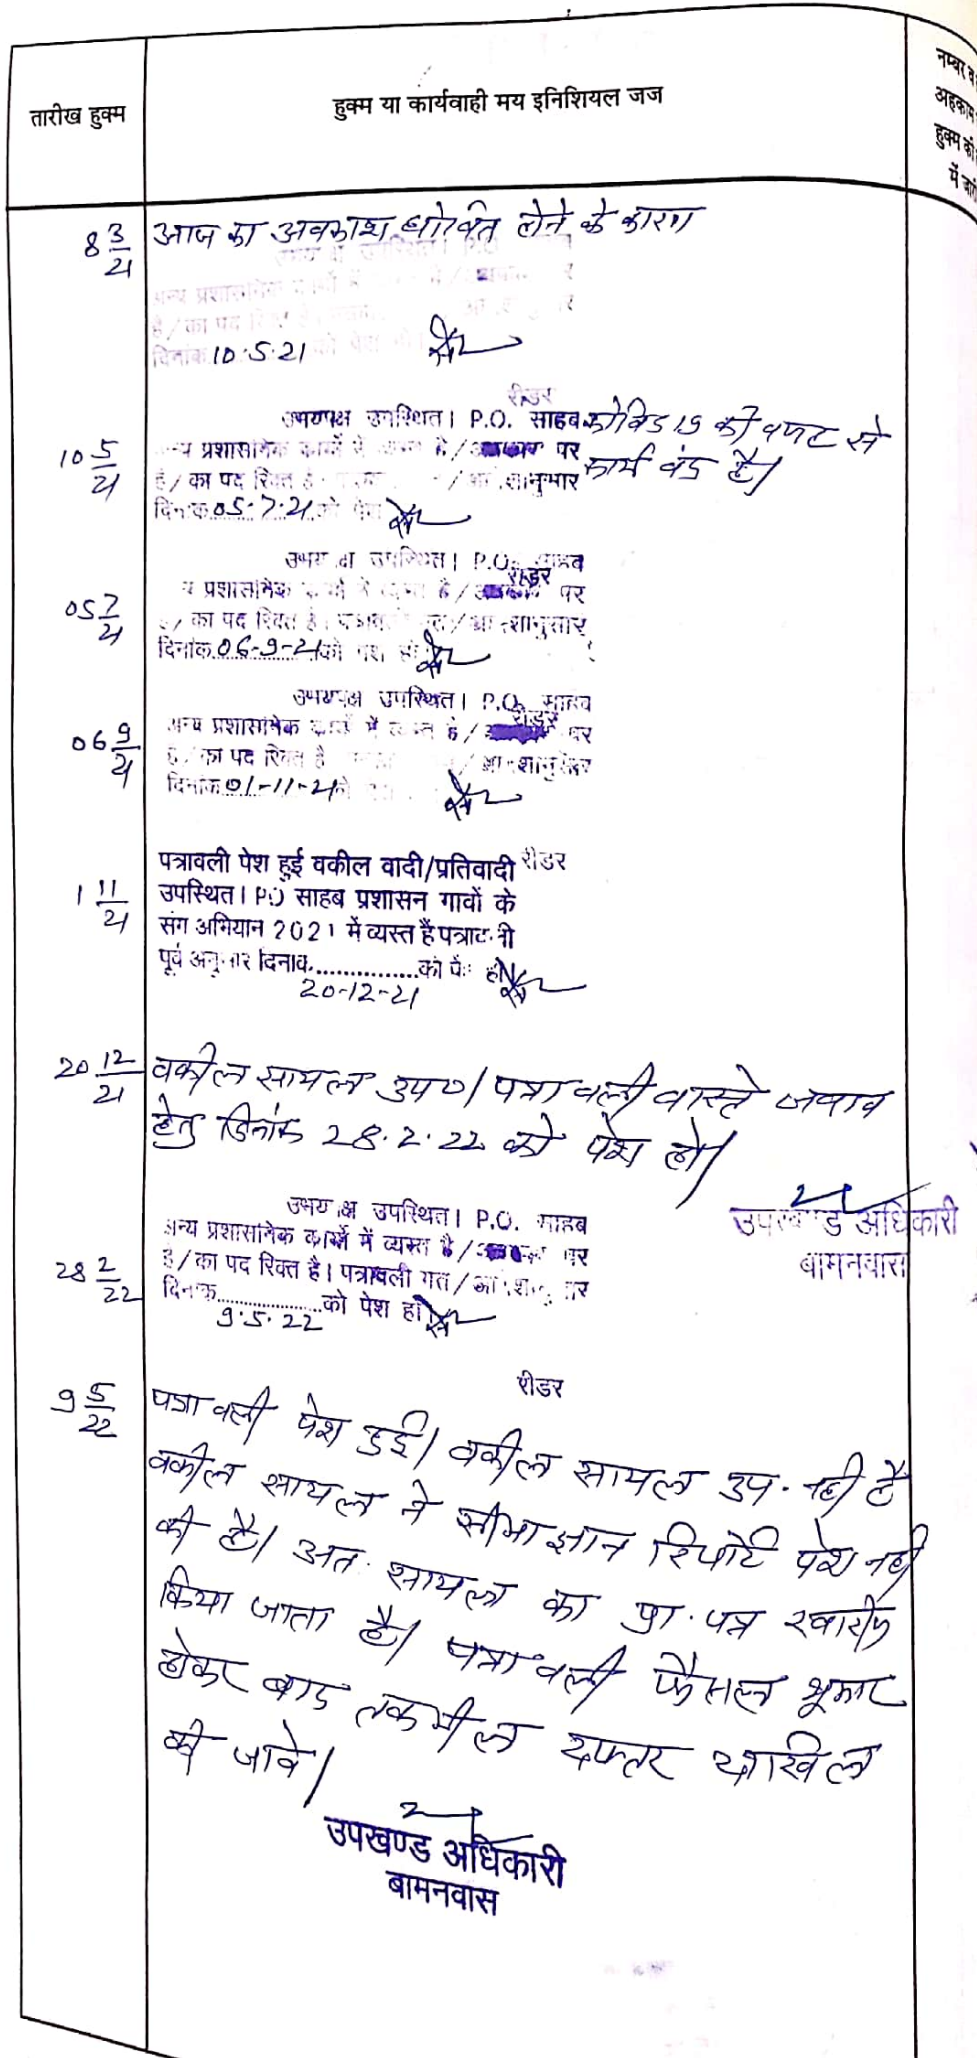 तारीख हुक्म
हुक्म या कार्यवाही मय इनिशियल जज
नम्बर व
अहकाम
हुक्म की
में जारी
8 3/21 आज का अवकाश घोषित होने के कारण
उपस्थित।
अन्य प्रशासनिक
है/का पद
दिनांक 10.5.21
रीडर
10 5/21 उभयपक्ष उपस्थित। P.O. साहब कोविड 19 की वजह से
प्रशासनिक कार्यो में / पर कार्य बंद है।
है/का पद रिक्त है
दिनांक 05.7.21 को पेश
रीडर
05 7/21 उपस्थित। P.O. साहब
प्रशासनिक है/ पर
का पद रिक्त है।
दिनांक 06-9-21 को पेश हो
रीडर
06 9/21 उभयपक्ष उपस्थित। P.O. साहब
अन्य प्रशासनिक कार्यो में व्यस्त है/ पर
का पद रिक्त है
दिनांक 01-11-21
रीडर
1 11/21 पत्रावली पेश हुई वकील वादी/प्रतिवादी
उपस्थित। P.O साहब प्रशासन गावों के
संग अभियान 2021 में व्यस्त है पत्रावली
पूर्व अनुसार दिनांक..............को पेश हो
20-12-21
20 12/21 वकील सायल उप०/ पत्रावली वास्ते जवाब
हेतु दिनांक 28.2.22 को पेश हो।
उपखण्ड अधिकारी
बामनवास
28 2/22 उपस्थित। P.O. साहब
अन्य प्रशासनिक कार्यो में व्यस्त है/ पर
है/का पद रिक्त है। पत्रावली गत/
दिनांक..............को पेश हो
9.5.22
रीडर
9 5/22 पत्रावली पेश हुई। वकील सायल उप. नही है
वकील सायल ने सीमाज्ञान रिपोर्ट पेश नही
की है। अतः सायल का प्रा. पत्र खारीज
किया जाता है। पत्रावली फैसल शुमार
होकर बाद तकमील दफ्तर दाखिल
की जावे।
उपखण्ड अधिकारी
बामनवास